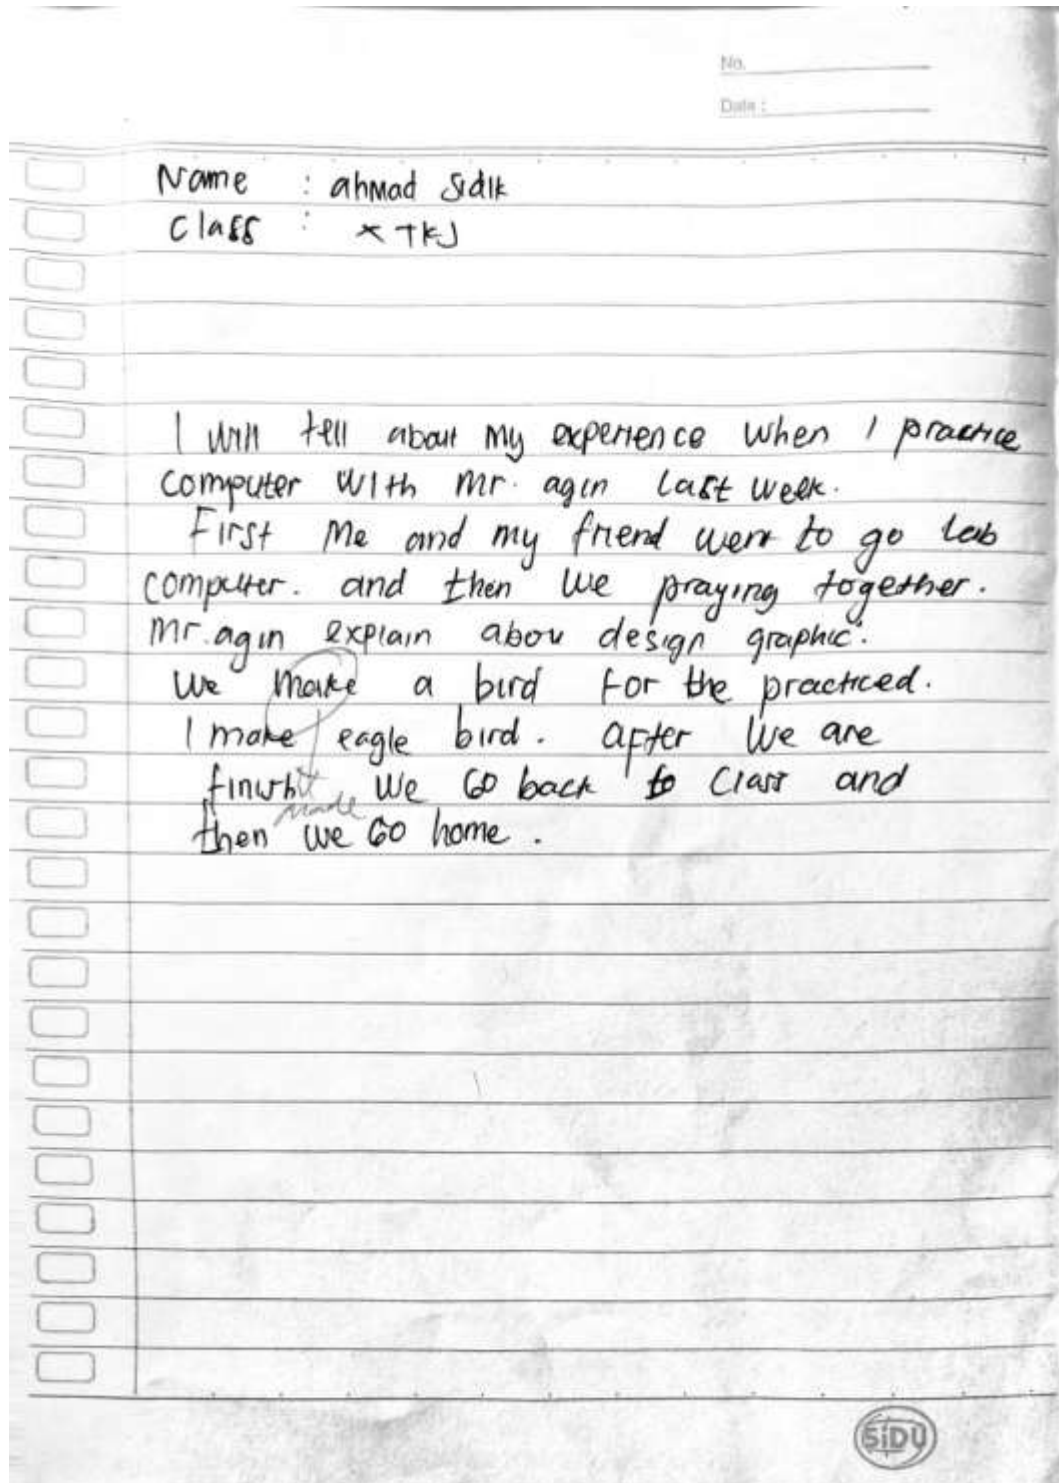 No.
Date :
Name : ahmad sidik
Class : X TKJ
I will tell about my experience when I practice
computer with mr. agin last week.
First me and my friend went to go lab
computer. and then we praying together.
mr. agin explain abou design graphic.
we make a bird for the practiced.
I make eagle bird. after we are
finish we Go back to class and
made
then we Go home.
SiDU